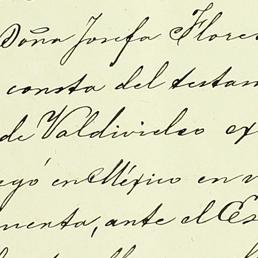 Doña Josefa Flores
consta del testam
de Valdivielso ex
egó en México en v
menta, ante el Es